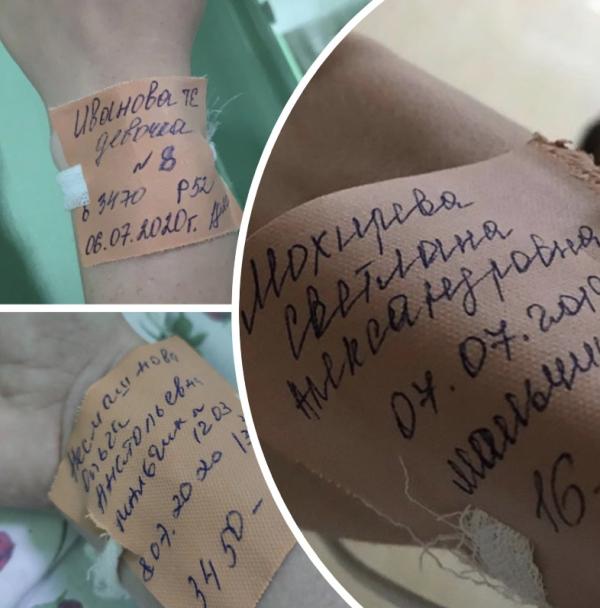 Иванова ТЕ
девочка
N 8
в 3470 Р52
06.07.2020г.
Мохирева
Светлана
Александровна
07.07.2019
мальчик
16-
Ольга
Анатольевна
мальчик
1203
8 07.2020
3450-